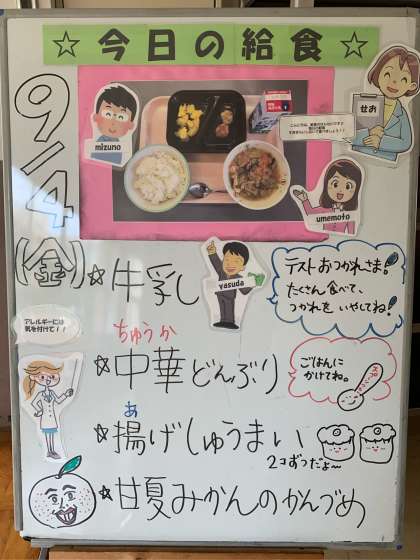 ☆今日の給食☆
9/4
(金)
mizuno
せお
umemoto
yasuda
☆牛乳
テストおつかれさま!
たくさん食べて、
つかれを いやしてね!
アレルギーには
気を付けて!!
ちゅうか
☆中華どんぶり
ごはんに
かけてね。
あ
☆揚げしゅうまい
2コずつだよ〜
☆甘夏みかんのかんづめ